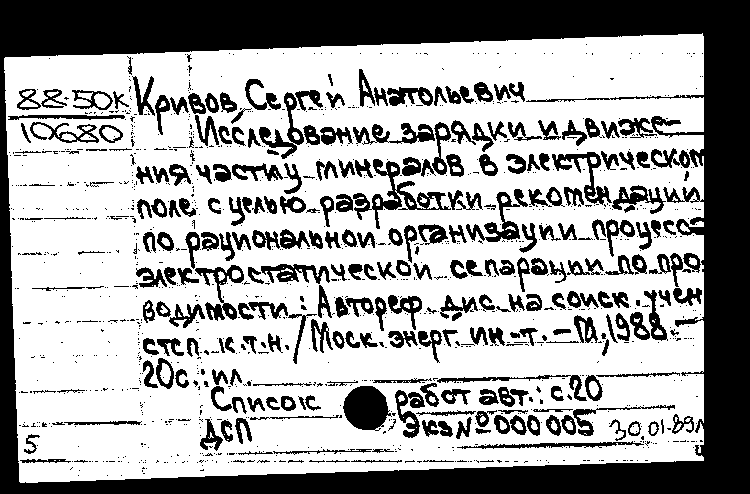 88-50к
10680
Кривов, Сергей Анатольевич
Исследование зарядки и движе-
ния частиц минералов в электрическом
поле с целью разработки рекомендаций
по рациональной организации процесса
электростатической сепарации по про
водимости : Автореф. дис. на соиск. учен
степ. к.т.н. / Моск. энерг. ин-т. – М., 1988. –
20с. : ил.
Список работ авт. : с.20
ДСП Экз № 000005 30.01.89
5